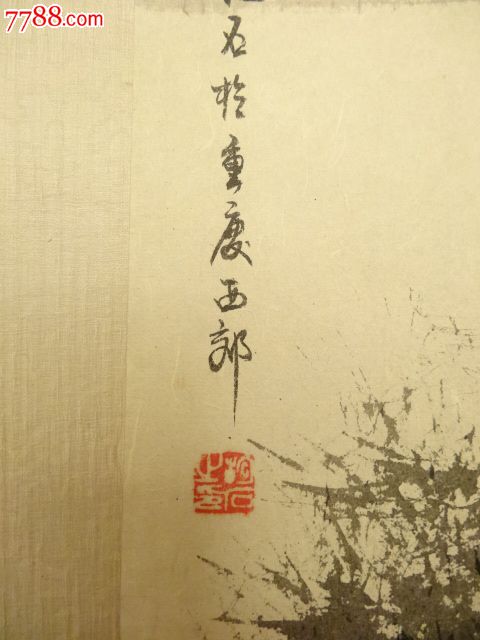 7788.com
石於重庆西郊